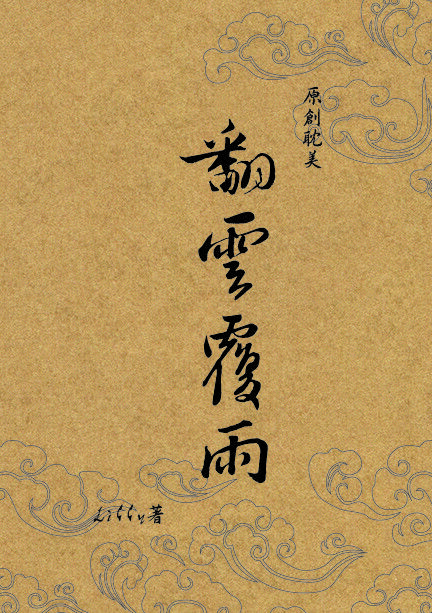 原創耽美
翻雲覆雨
Litty著